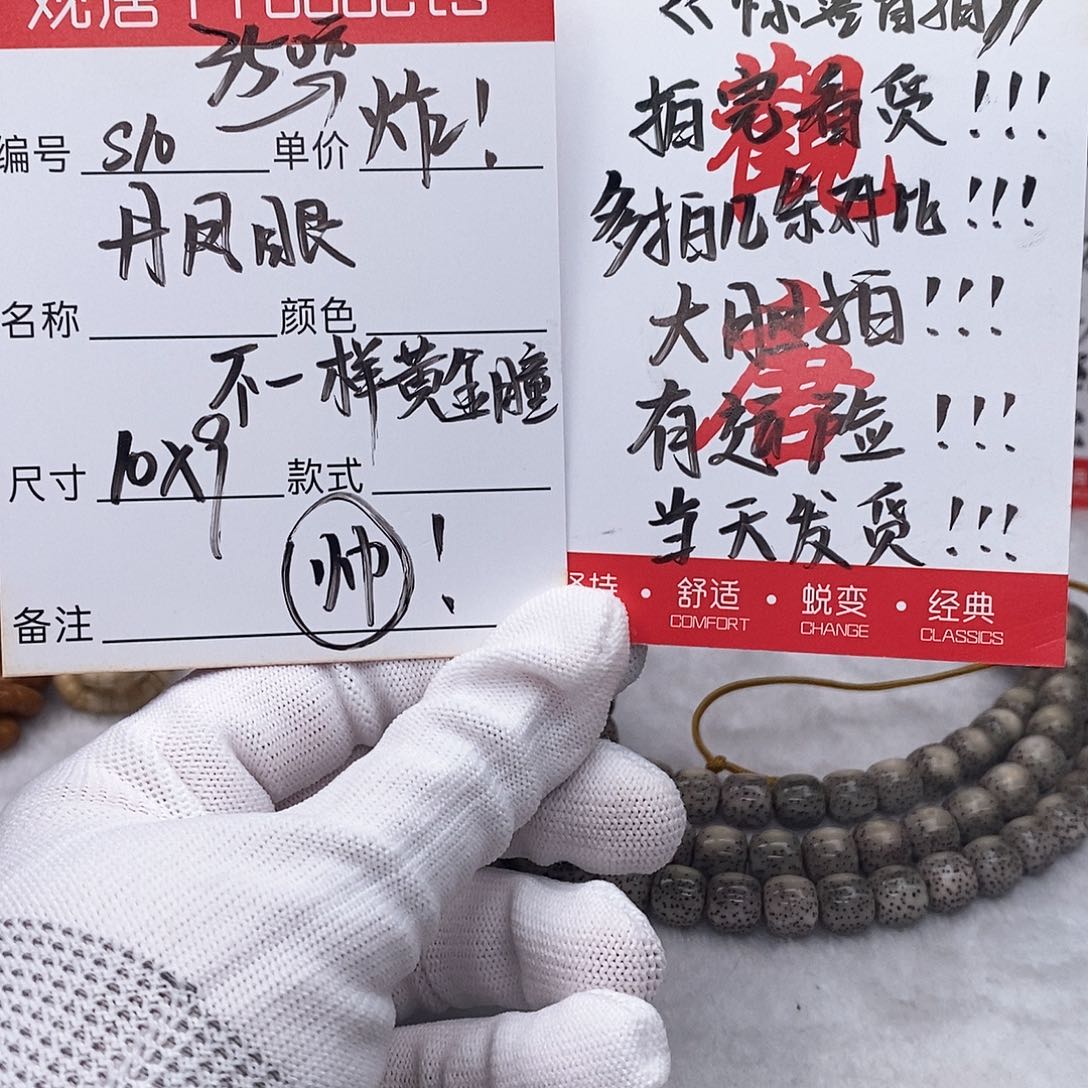 观唐 Products
编号 S10 单价 炸！
丹凤眼
名称 颜色
不一样黄金瞳
尺寸 10X9 款式
帅！
备注
拍完看货！！！
多拍几条对比！！！
大胆拍！！！
有运险！！！
当天发货！！！
坚持 · 舒适 · 蜕变 · 经典
COMFORT CHANGE CLASSICS
觀唐